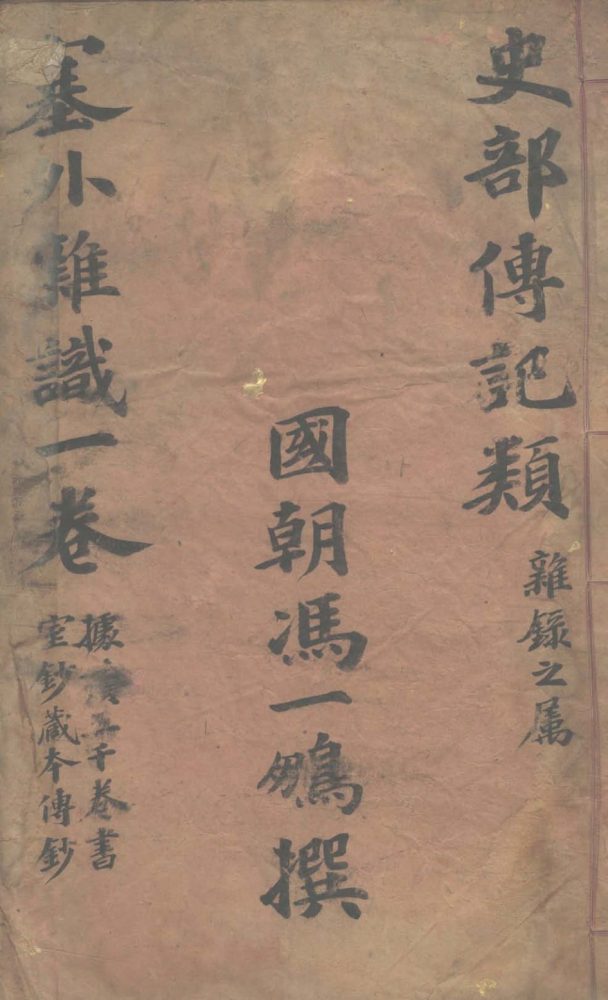 史部傳記類
雜錄之属
國朝馮一鵬撰
塞外雜識一卷
據千卷書
室鈔藏本傳鈔